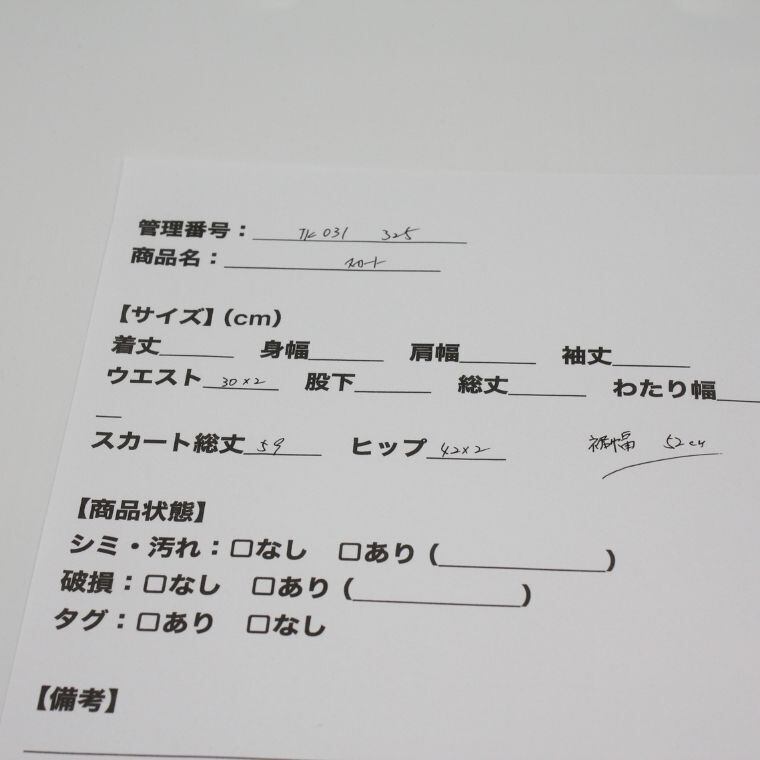 管理番号：TK031 325
商品名：スカート
【サイズ】(cm)
着丈______ 身幅______ 肩幅______ 袖丈______
ウエスト 30×2 股下______ 総丈______ わたり幅____
__
スカート総丈 59 ヒップ 42×2 裾幅 52cm
【商品状態】
シミ・汚れ：□なし □あり (____________)
破損：□なし □あり (____________)
タグ：□あり □なし
【備考】